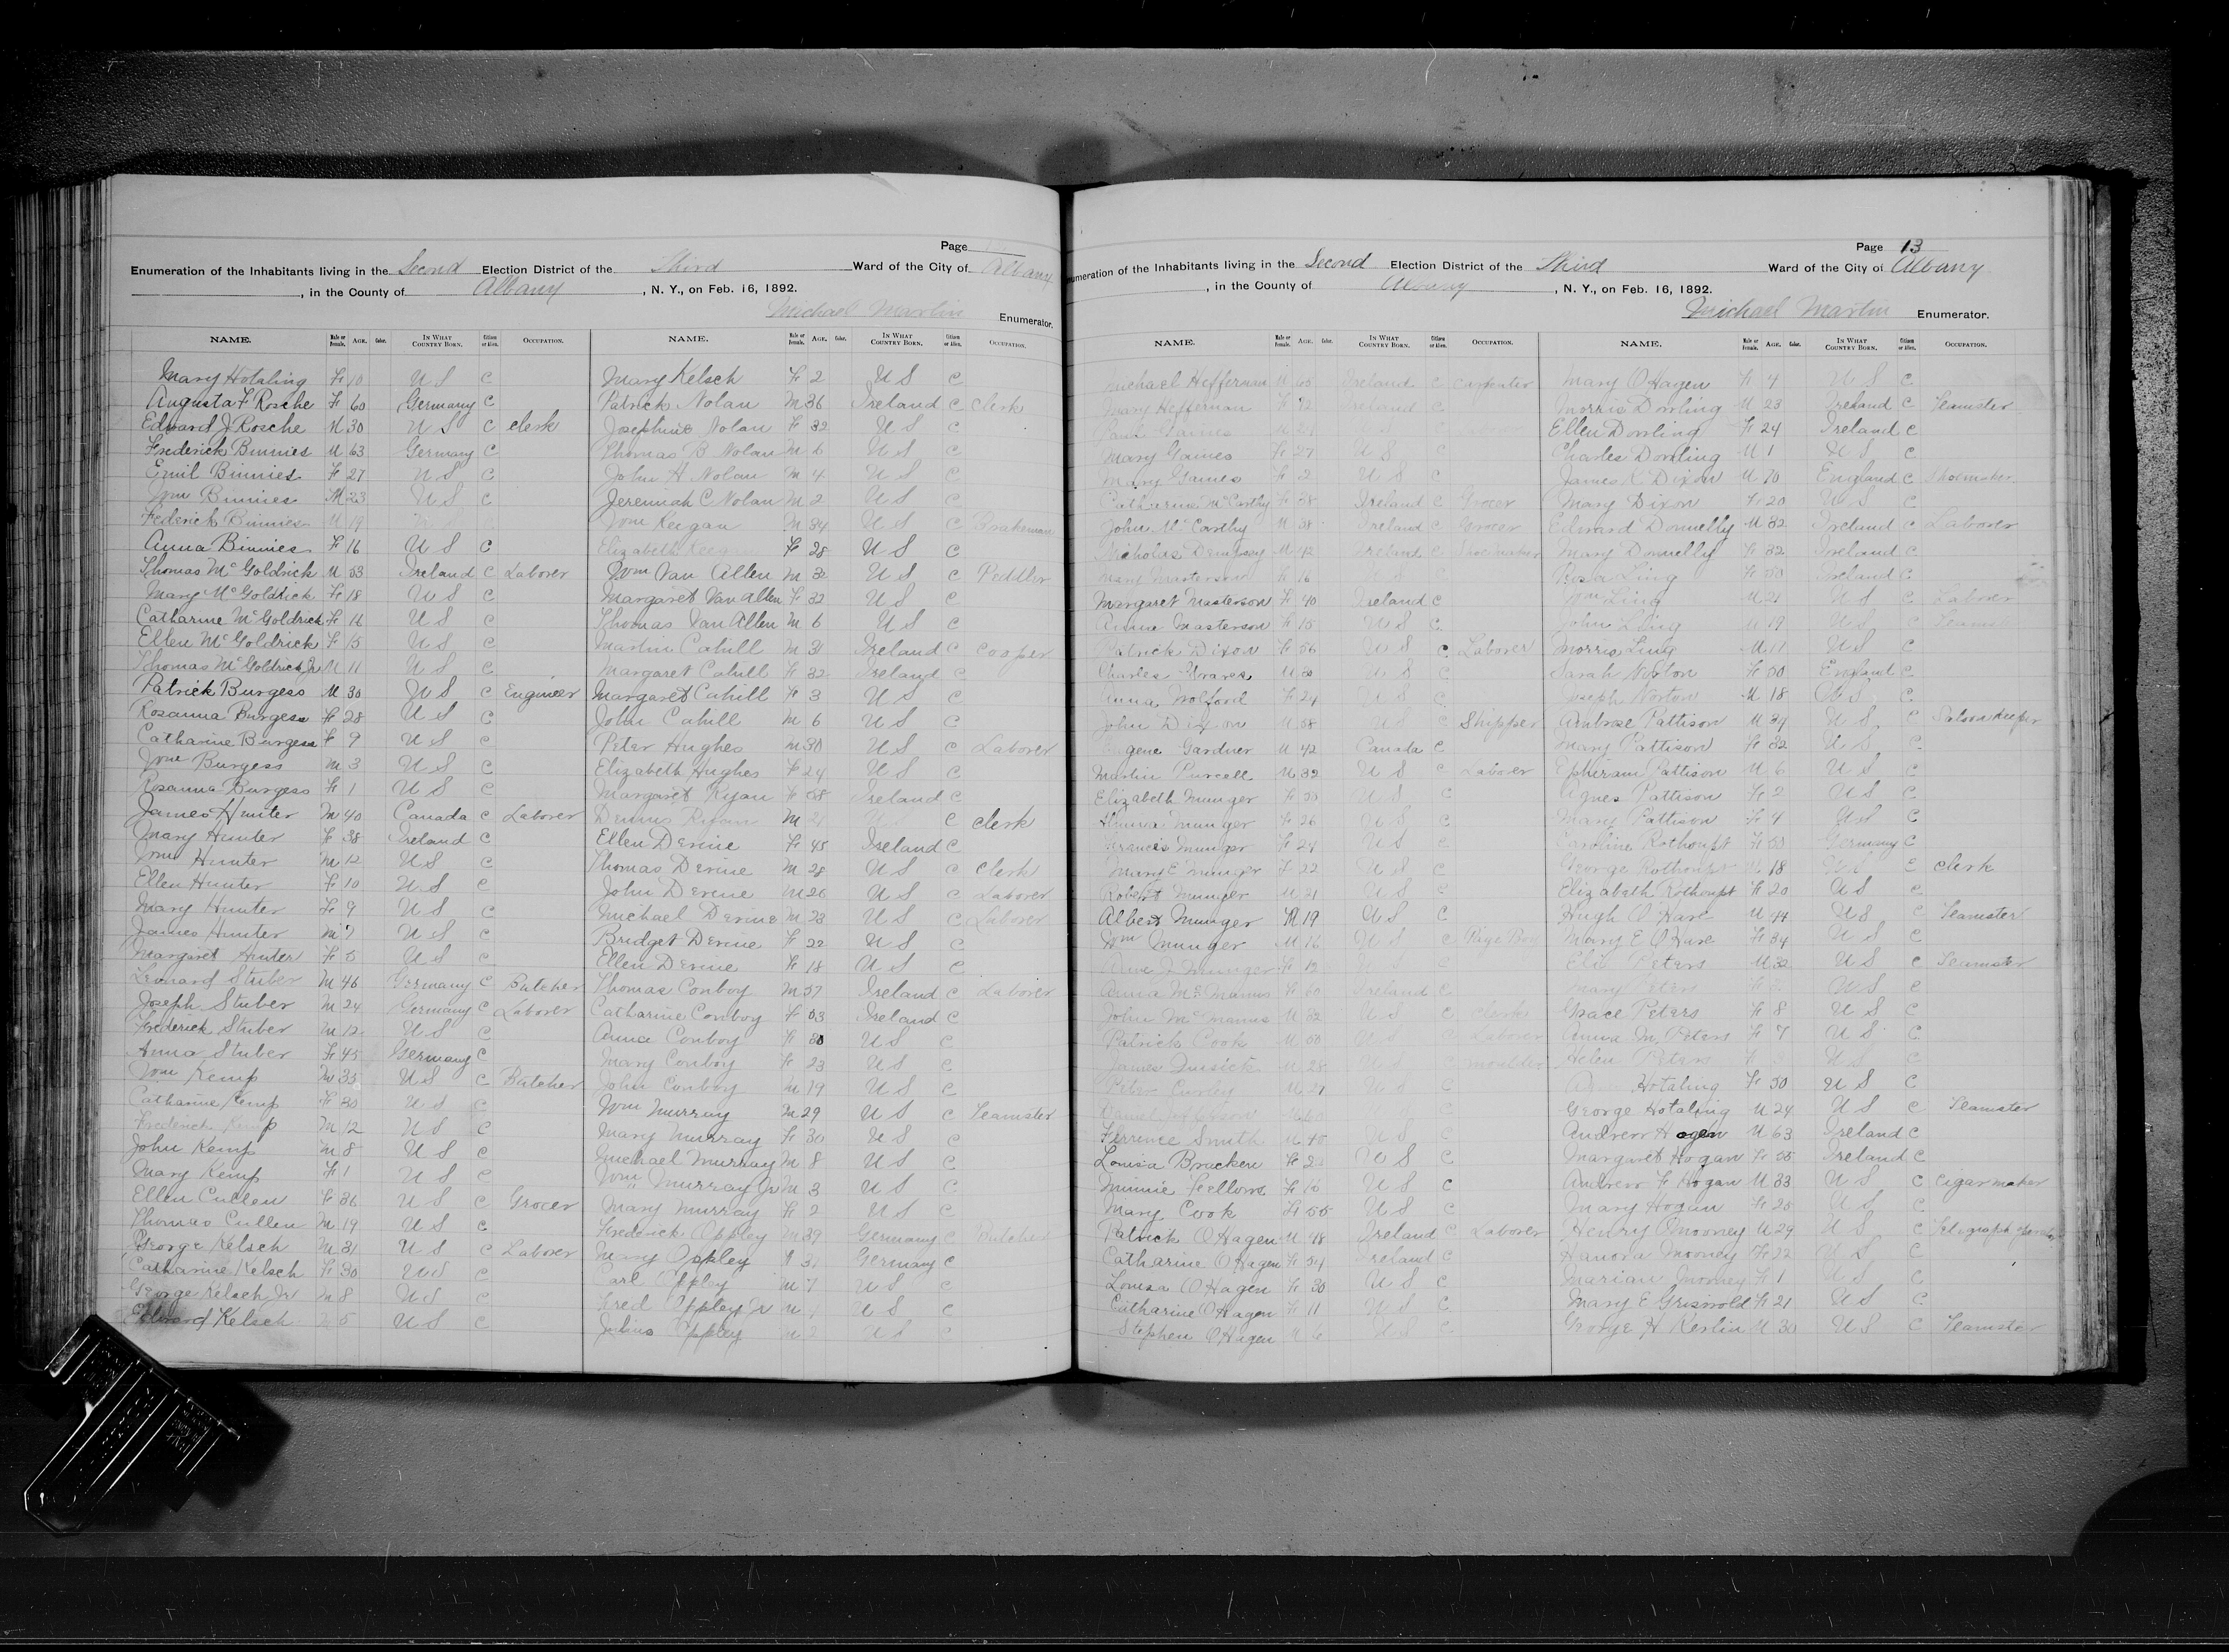 Page
Enumeration of the Inhabitants living in the Second Election District of the Third Ward of the City of Albany
, in the County of Albany , N. Y., on Feb. 16, 1892.
Michael Martin Enumerator.
NAME. Male or Female. AGE. Color. IN WHAT COUNTRY BORN. Citizen or Alien. OCCUPATION. NAME. Male or Female. AGE. Color. IN WHAT COUNTRY BORN. Citizen or Alien. OCCUPATION.
Mary Hotaling F 10 U S C
Augusta F Rosche F 60 Germany C
Edward J Rosche M 30 U S C clerk
Frederick Binnies M 63 Germany C
Emil Binnies F 27 U S C
Wm Binnies M 23 U S C
Federick Binnies M 19
Anna Binnies F 16 U S C
Thomas McGoldrick M 53 Ireland C Laborer
Mary McGoldrick F 18 U S C
Catharine McGoldrick F 16 U S C
Ellen McGoldrick F 15 U S C
Thomas McGoldrick Jr M 11 U S C
Patrick Burgess M 30 U S C Engineer
Rosanna Burgess F 28 U S C
Catharine Burgess F 9 U S C
Wm Burgess M 3 U S C
Rosanna Burgess F 1 U S C
James Hunter M 40 Canada C Laborer
Mary Hunter F 38 Ireland C
Wm Hunter M 12 U S C
Ellen Hunter F 10 U S C
Mary Hunter F 9 U S C
James Hunter M 7 U S C
Margaret Hunter F 5 U S C
Leonard Stuber M 46 Germany C Butcher
Joseph Stuber M 24 Germany C Laborer
Frederick Stuber M 12 U S C
Anna Stuber F 45 Germany C
Wm Kemp M 35 U S C Butcher
Catharine Kemp F 30 U S C
Frederick Kemp M 12 U S C
John Kemp M 8 U S C
Mary Kemp F 1 U S C
Ellen Cullen F 36 U S C Grocer
Thomas Cullen M 19 U S C
George Kelsch M 31 U S C Laborer
Catharine Kelsch F 30 U S C
George Kelsch Jr M 8 U S C
Edward Kelsch M 5 U S C
Mary Kelsch F 2 U S C
Patrick Nolan M 36 Ireland C Clerk
Josephine Nolan F 32 U S C
Thomas B Nolan M 6 U S C
John H Nolan M 4 U S C
Jeremiah C Nolan M 2 U S C
Wm Keegan M 34 U S C Brakeman
Elizabeth Keegan F 28 U S C
Wm Van Allen M 32 U S C Peddler
Margaret Van Allen F 32 U S C
Thomas Van Allen M 6 U S C
Martin Cahill M 31 Ireland C Cooper
Margaret Cahill F 32 Ireland C
Margaret Cahill F 3 U S C
John Cahill M 6 U S C
Peter Hughes M 30 U S C Laborer
Elizabeth Hughes F 24 U S C
Margaret Ryan F 58 Ireland C
Dennis Ryan M 21 C clerk
Ellen Devine F 45 Ireland C
Thomas Devine M 28 U S C Clerk
John Devine M 26 U S C Laborer
Michael Devine M 23 U S C Laborer
Bridget Devine F 22 U S C
Ellen Devine F 18 U S C
Thomas Conboy M 57 Ireland C Laborer
Catharine Conboy F 53 Ireland C
Anna Conboy F 30 U S C
Mary Conboy F 23 U S C
John Conboy M 19 U S C
Wm Murray M 29 U S C Teamster
Mary Murray F 30 U S C
Michael Murray M 8 U S C
Wm Murray Jr M 3 U S C
Mary Murray F 2 U S C
Frederick Oppley M 39 Germany C Butcher
Mary Oppley F 37 Germany C
Carl Oppley M 7 U S C
Fred Oppley Jr M U S C
Julius Oppley M 2 U S C
Page 13
Enumeration of the Inhabitants living in the Second Election District of the Third Ward of the City of Albany
, in the County of Albany , N. Y., on Feb. 16, 1892.
Michael Martin Enumerator.
NAME. Male or Female. AGE. Color. IN WHAT COUNTRY BORN. Citizen or Alien. OCCUPATION. NAME. Male or Female. AGE. Color. IN WHAT COUNTRY BORN. Citizen or Alien. OCCUPATION.
Michael Heffernan M 60 Ireland C carpenter
Mary Heffernan F Ireland C
Gaines M
Mary Gaines F 27 U S C
Mary Gaines F 2 U S C
Catharine McCarthy F 38 Ireland C Grocer
John McCarthy M 38 Ireland C Grocer
Nicholas Dempsey M 42 Ireland C Shoemaker
Mary Masterson F 16 U S C
Margaret Masterson F 40 Ireland C
Anna Masterson F 15 U S C
Patrick Dixon 56 U S C Laborer
Charles M 30 U S C
Anna Wolford F 24 U S C
John Dixon M 58 U S C Shipper
Eugene Gardner M 42 Canada C
Martin Purcell M 32 U S C Laborer
Elizabeth Munger F U S C
Munger F 26 U S C
Frances Munger F 24 U S C
Mary E Munger F 22 U S C
Robert Munger M 21 U S C
Albert Munger M 19 U S C
Wm Munger M 16 U S C Page Boy
Munger F 12 U S C
Anna McManus F 60 Ireland C
John McManus M 32 U S C clerk
Patrick Cook M 50 U S C Laborer
James Cusick M 28 U S C moulder
Peter Curley M 27 U S C
Daniel C
Terrence Smith M 40 U S C
Louisa Bracken F U S C
Minnie Fellows F 16 U S C
Mary Cook F 55 U S C
Patrick O'Hagen M 48 Ireland C Laborer
Catharine O'Hagen F 54 Ireland C
Louisa O'Hagen F 30 U S C
Catharine O'Hagen F 11 U S C
Stephen O'Hagen M 6 U S C
Mary O'Hagen F 4 U S C
Morris Dowling M 23 Ireland C Teamster
Ellen Dowling F 24 Ireland C
Charles Dowling M 1 U S C
James C Dixon M 70 England C Shoemaker
Mary Dixon F 20 U S C
Edward Donnelly M 32 Ireland C Laborer
Mary Donnelly F 32 Ireland C
Rosa Ling F 50 Ireland C
Wm Ling M 21 U S C Laborer
John Ling M 19 U S C
Morris Ling M 11 U S C
Sarah Norton F 50 England C
Joseph Norton M 18 U S C
Ambrose Pattison M 34 U S C Saloon Keeper
Mary Pattison F 32 U S C
Ephiram Pattison M 6 U S C
Agnes Pattison F 2 U S C
Mary Pattison F 4 U S C
Caroline Rothoupt F 50 Germany C
George Rothoupt M 18 U S C clerk
Elizabeth Rothoupt F 20 U S C
Hugh O'Hare M 44 U S C Teamster
Mary E O'Hare F 34 U S C
Eli Peters M 32 U S C Teamster
Mary Peters F U S C
Grace Peters F 8 U S C
Anna M Peters F 7 U S C
Helen Peters F U S C
Hotaling F 50 U S C
George Hotaling M 24 U S C Teamster
Andrew Hogen M 63 Ireland C
Margaret Hogan F 55 Ireland C
Andrew F Hogan M 33 U S C Cigar maker
Mary Hogan F 25 U S C
Henry O Mooney M 29 U S C Telegraph
Hanora Mooney F U S C
Marian Mooney F 1 U S C
Mary E Griswold F 21 U S C
George H Kerlin M 30 U S C Teamster